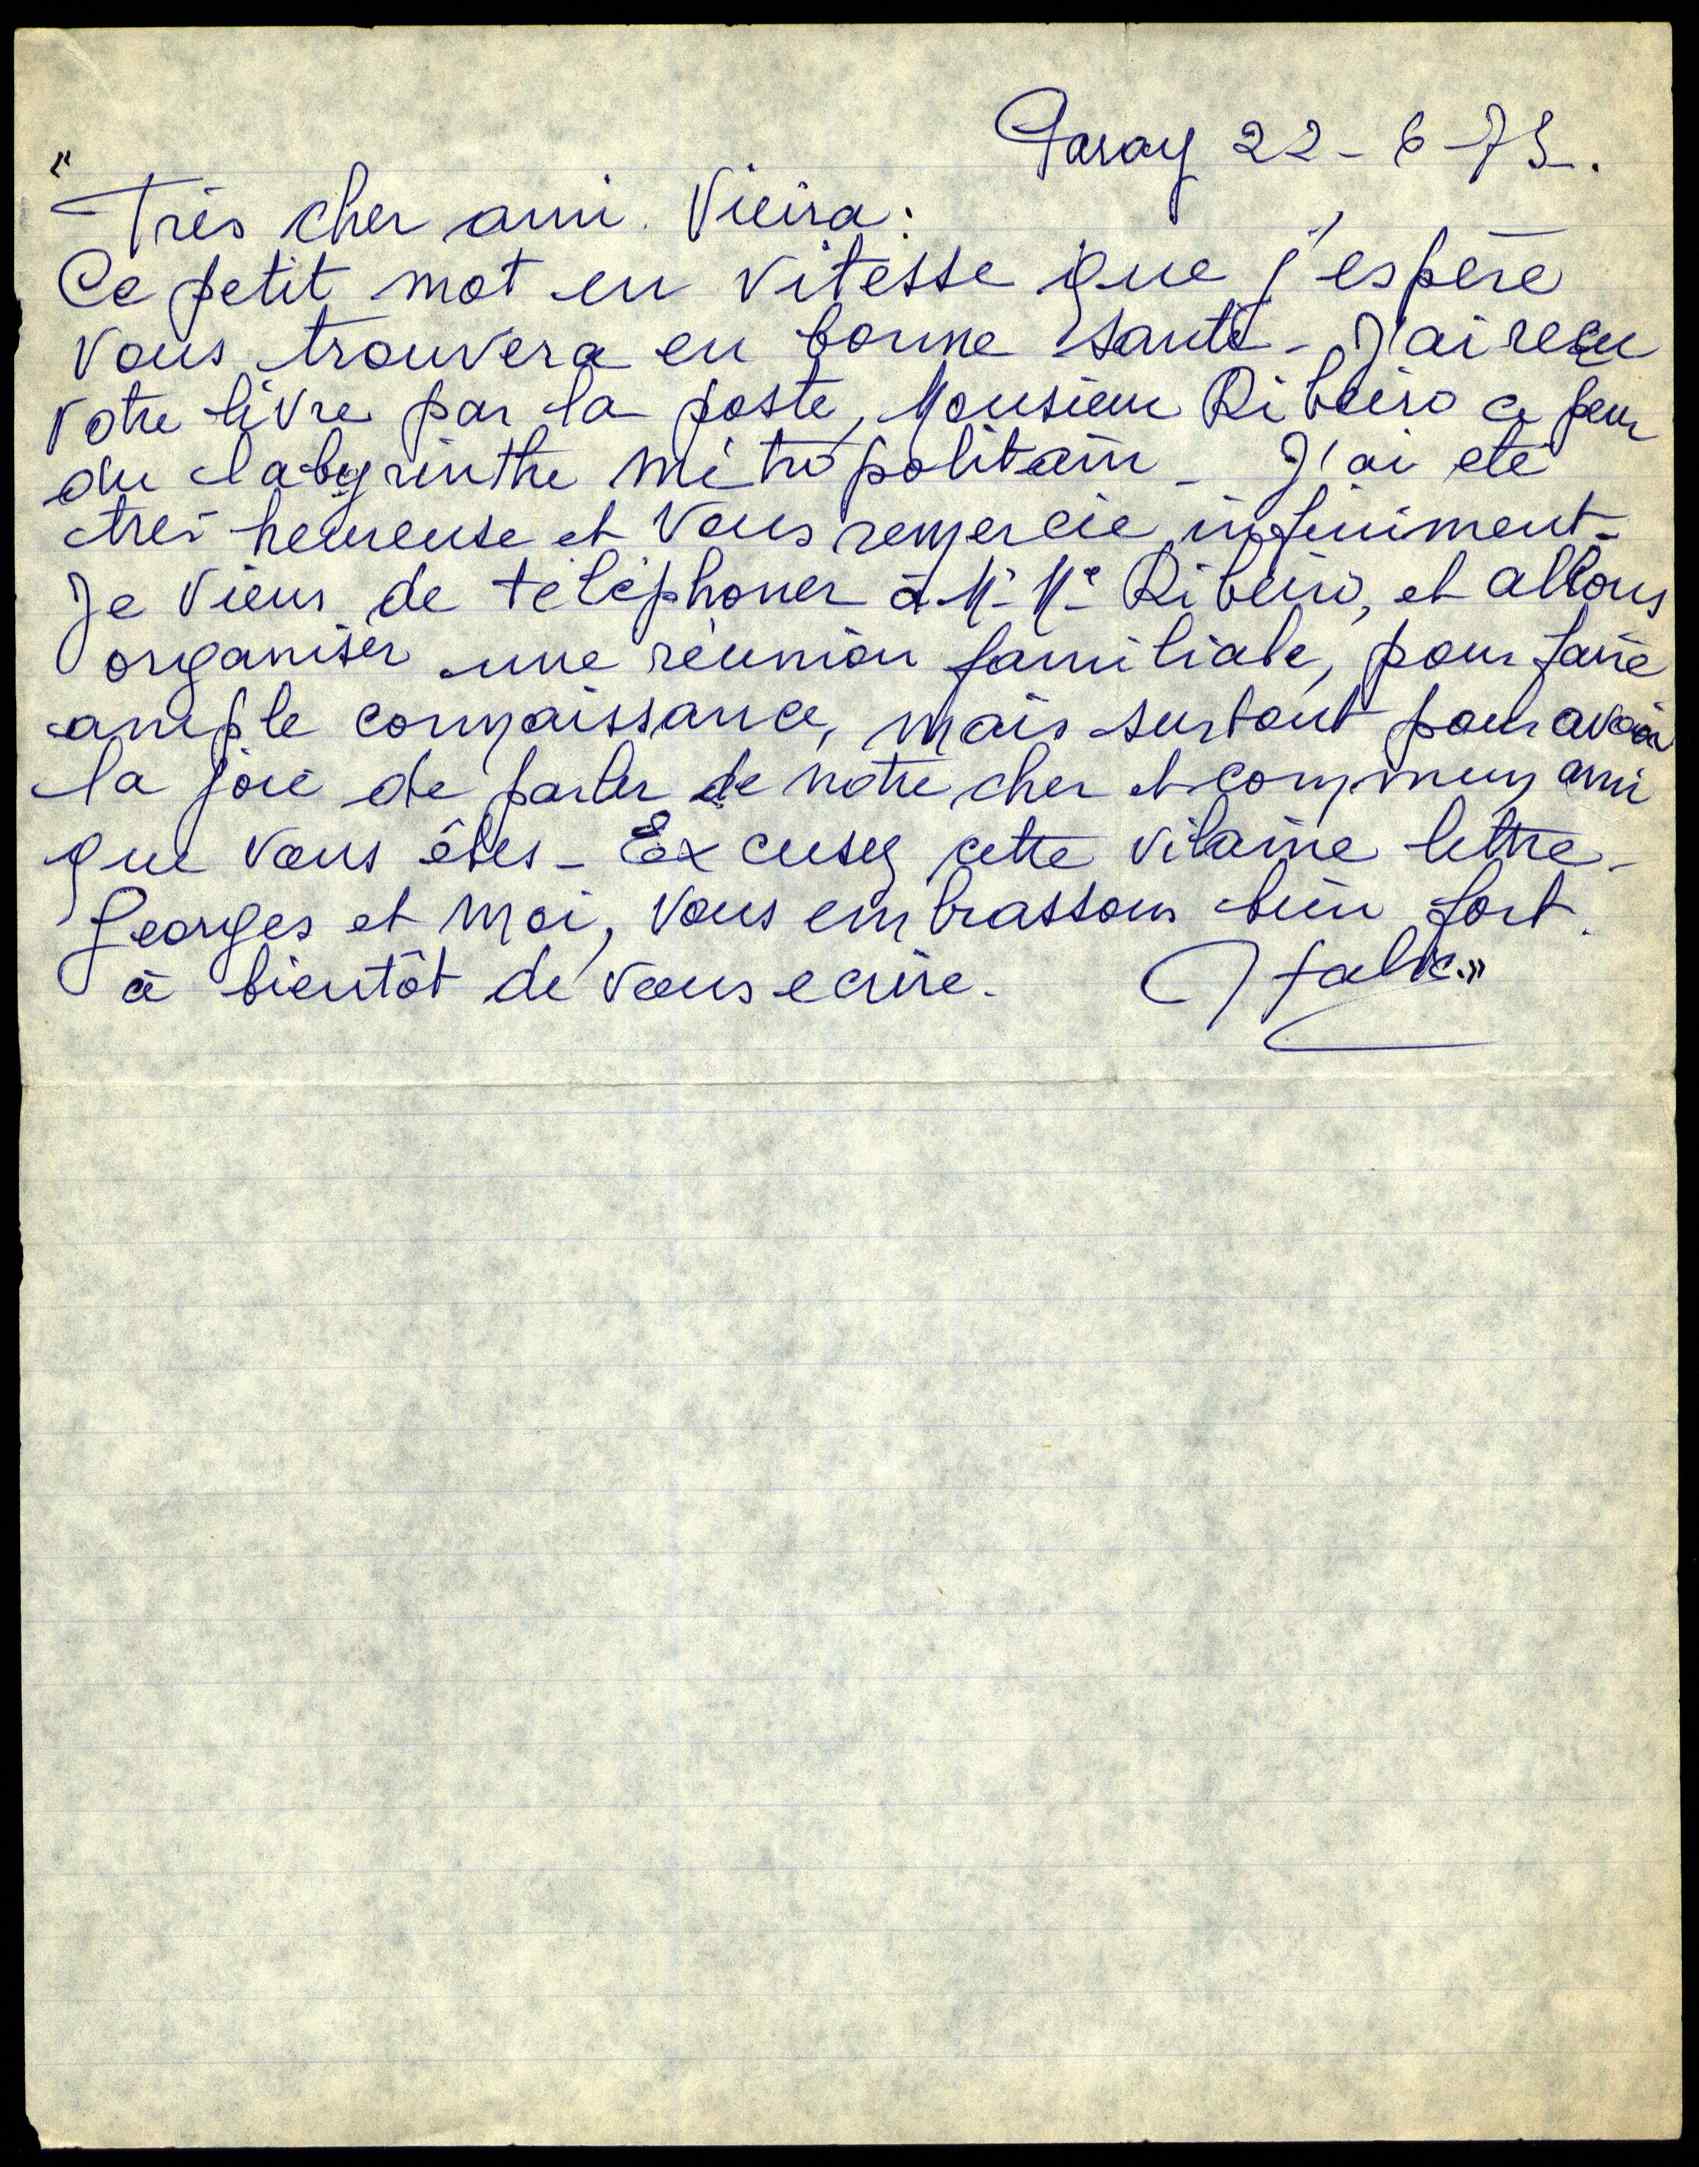 Paray 22-6-75.
"Très cher ami Vieira:
Ce petit mot en vitesse que j'espère
vous trouvera en bonne santé - J'ai reçu
votre livre par la poste, Monsieur Ribeiro a peur
du labyrinthe métropolitain - J'ai été
très heureuse et vous remercie infiniment -
Je viens de téléphoner à Mr Me Ribeiro, et allons
organiser une réunion familiale, pour faire
ample connaissance, mais surtout pour avoir
la joie de parler de notre cher et commun ami
que vous êtes - Excusez cette vilaine lettre -
Georges et moi, vous embrassons bien fort.
à bientôt de vous ecrire.